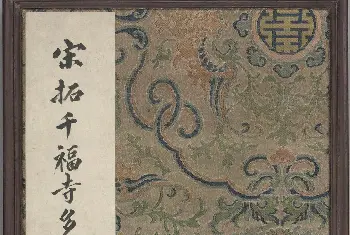 宋拓千福寺多